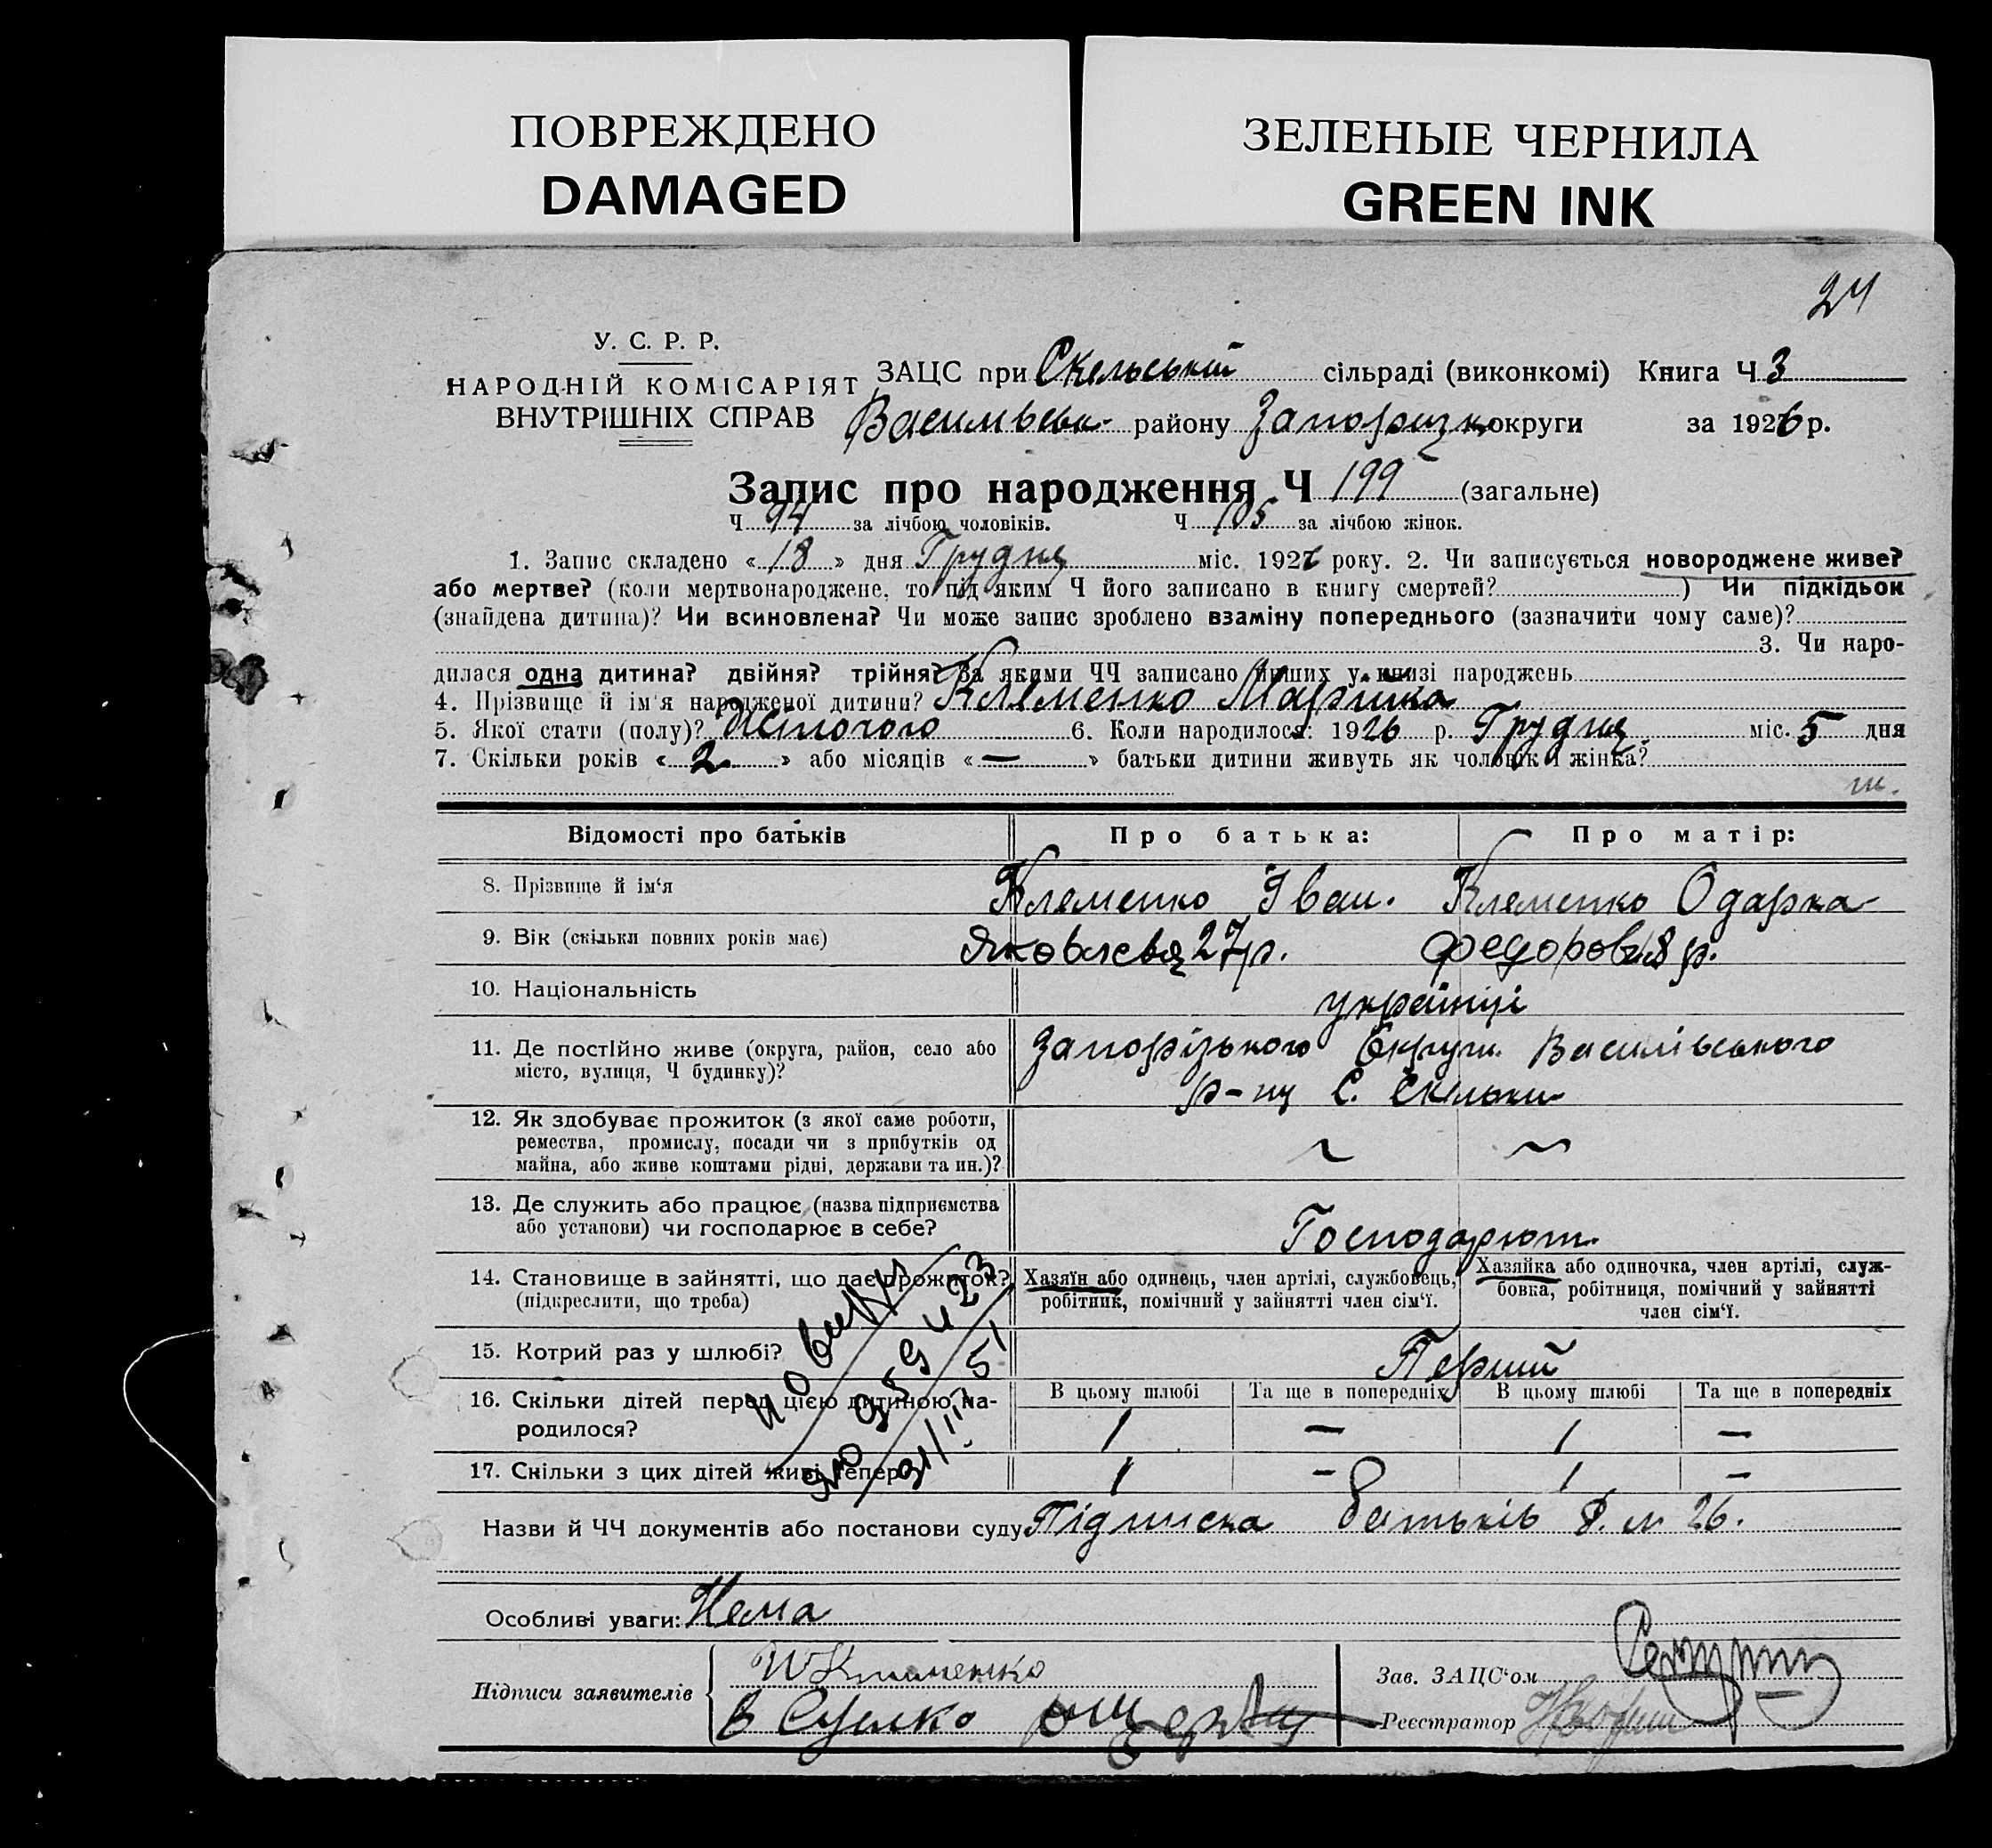 ПОВРЕЖДЕНО
DAMAGED
ЗЕЛЕНЫЕ ЧЕРНИЛА
GREEN INK
24
У. С. Р. Р.
НАРОДНІЙ КОМІСАРІЯТ
ВНУТРІШНІХ СПРАВ
ЗАЦС при Скельській сільраді (виконкомі) Книга Ч 3
Васильвськ. району Запорізьк округи за 1926 р.
Запис про народження Ч 199 (загальне)
Ч 94 за лічбою чоловіків. Ч 105 за лічбою жінок.
1. Запис складено «18» дня Грудня міс. 1926 року. 2. Чи записується новороджене живе?
або мертве? (коли мертвонароджене, то під яким Ч його записано в книгу смертей? ) Чи підкідьок
(знайдена дитина)? Чи всиновлена? Чи може запис зроблено взаміну попереднього (зазначити чому саме)?
3. Чи наро-
дилася одна дитина? двійня? трійня? За якими ЧЧ записано інших у книзі народжень
4. Прізвище й ім'я народженої дитини? Клеменко Марійка
5. Якої стати (полу)? Жіночого 6. Коли народилося: 1926 р. Грудня міс. 5 дня
7. Скільки років «2» або місяців «—» батьки дитини живуть як чоловік і жінка?
Відомості про батьків Про батька: Про матір:
8. Прізвище й ім'я Клеменко Іван. Клеменко Одарка
9. Вік (скільки повних років має) Яковлевя 27 р. Федоров р.
10. Національність українці
11. Де постійно живе (округа, район, село або Запорізького Округи Василівського
місто, вулиця, Ч будинку)? р-ну С. Скельки
12. Як здобуває прожиток (з якої саме роботи,
ремества, промислу, посади чи з прибутків од
майна, або живе коштами рідні, держави та ин.)? ~ ~
13. Де служить або працює (назва підприємства
або установи) чи господарює в себе? Господарюют.
14. Становище в зайнятті, що дає прожиток? Хазяїн або одинець, член артілі, службовець, Хазяйка або одиночка, член артілі, служ-
(підкреслити, що треба) робітник, помічний у зайнятті член сім'ї. бовка, робітниця, помічний у зайнятті
член сім'ї.
15. Котрий раз у шлюбі? Перший
16. Скільки дітей перед цією дитиною на- В цьому шлюбі Та ще в попередніх В цьому шлюбі Та ще в попередніх
родилося? 1 — 1 —
17. Скільки з цих дітей живі тепер 1 — 1 —
Назви й ЧЧ документів або постанови суду Підписка батьків 26.
Особливі уваги: Нема
Підписи заявителів Клименко
Зав. ЗАЦС'ом
Реєстратор